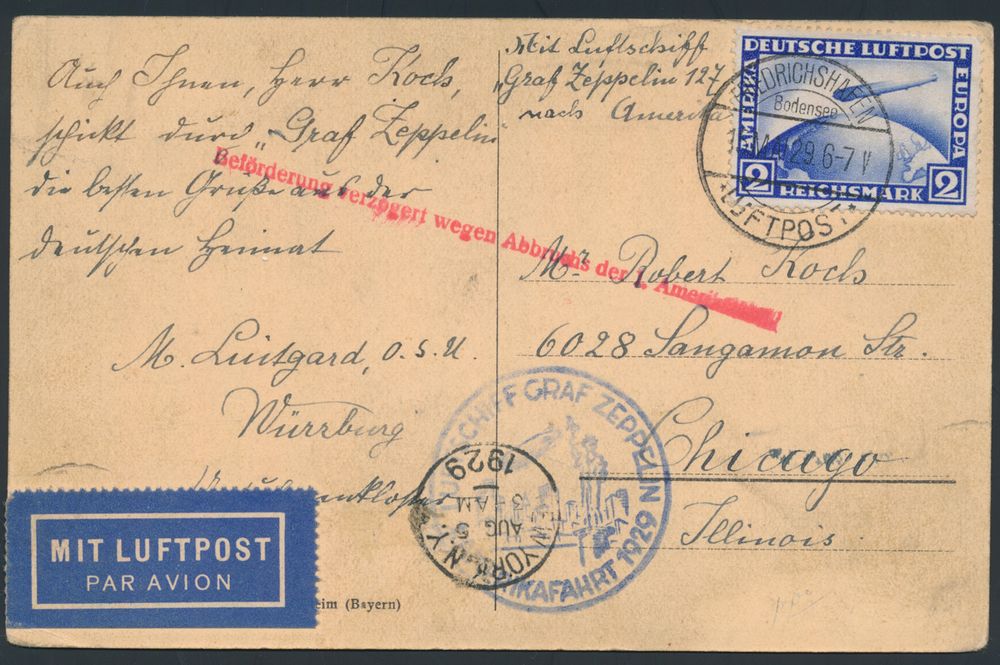 Auch Ihnen, Herr Koch,
schickt durch „Graf Zeppelin“
die besten Grüße aus der
deutschen Heimat
M. Luitgard, O.S.U.
Würzburg
MIT LUFTPOST
PAR AVION
eim (Bayern)
Mit Luftschiff
„Graf Zeppelin 127
nach Amerika
DEUTSCHE LUFTPOST
AMERIKA
EUROPA
2 REICHSMARK 2
FRIEDRICHSHAFEN
Bodensee
29.6-7 V
LUFTPOST
Beförderung verzögert wegen Abbruchs der 1. Amerik
Mr. Robert Koch
6028 Sangamon Str.
Chicago
Illinois.
LUFTSCHIFF GRAF ZEPPELIN
AMERIKAFAHRT 1929
YORK, N.Y.
AUG 5
3 AM
1929